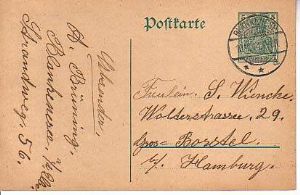 Postkarte
Absender:
A. Brüning,
Blankenese, b/Hbg.
Strandweg 56.
Fräulein S. Wiencke,
Wolterstrasse 29.
Gross-Borstel
b/ Hamburg.